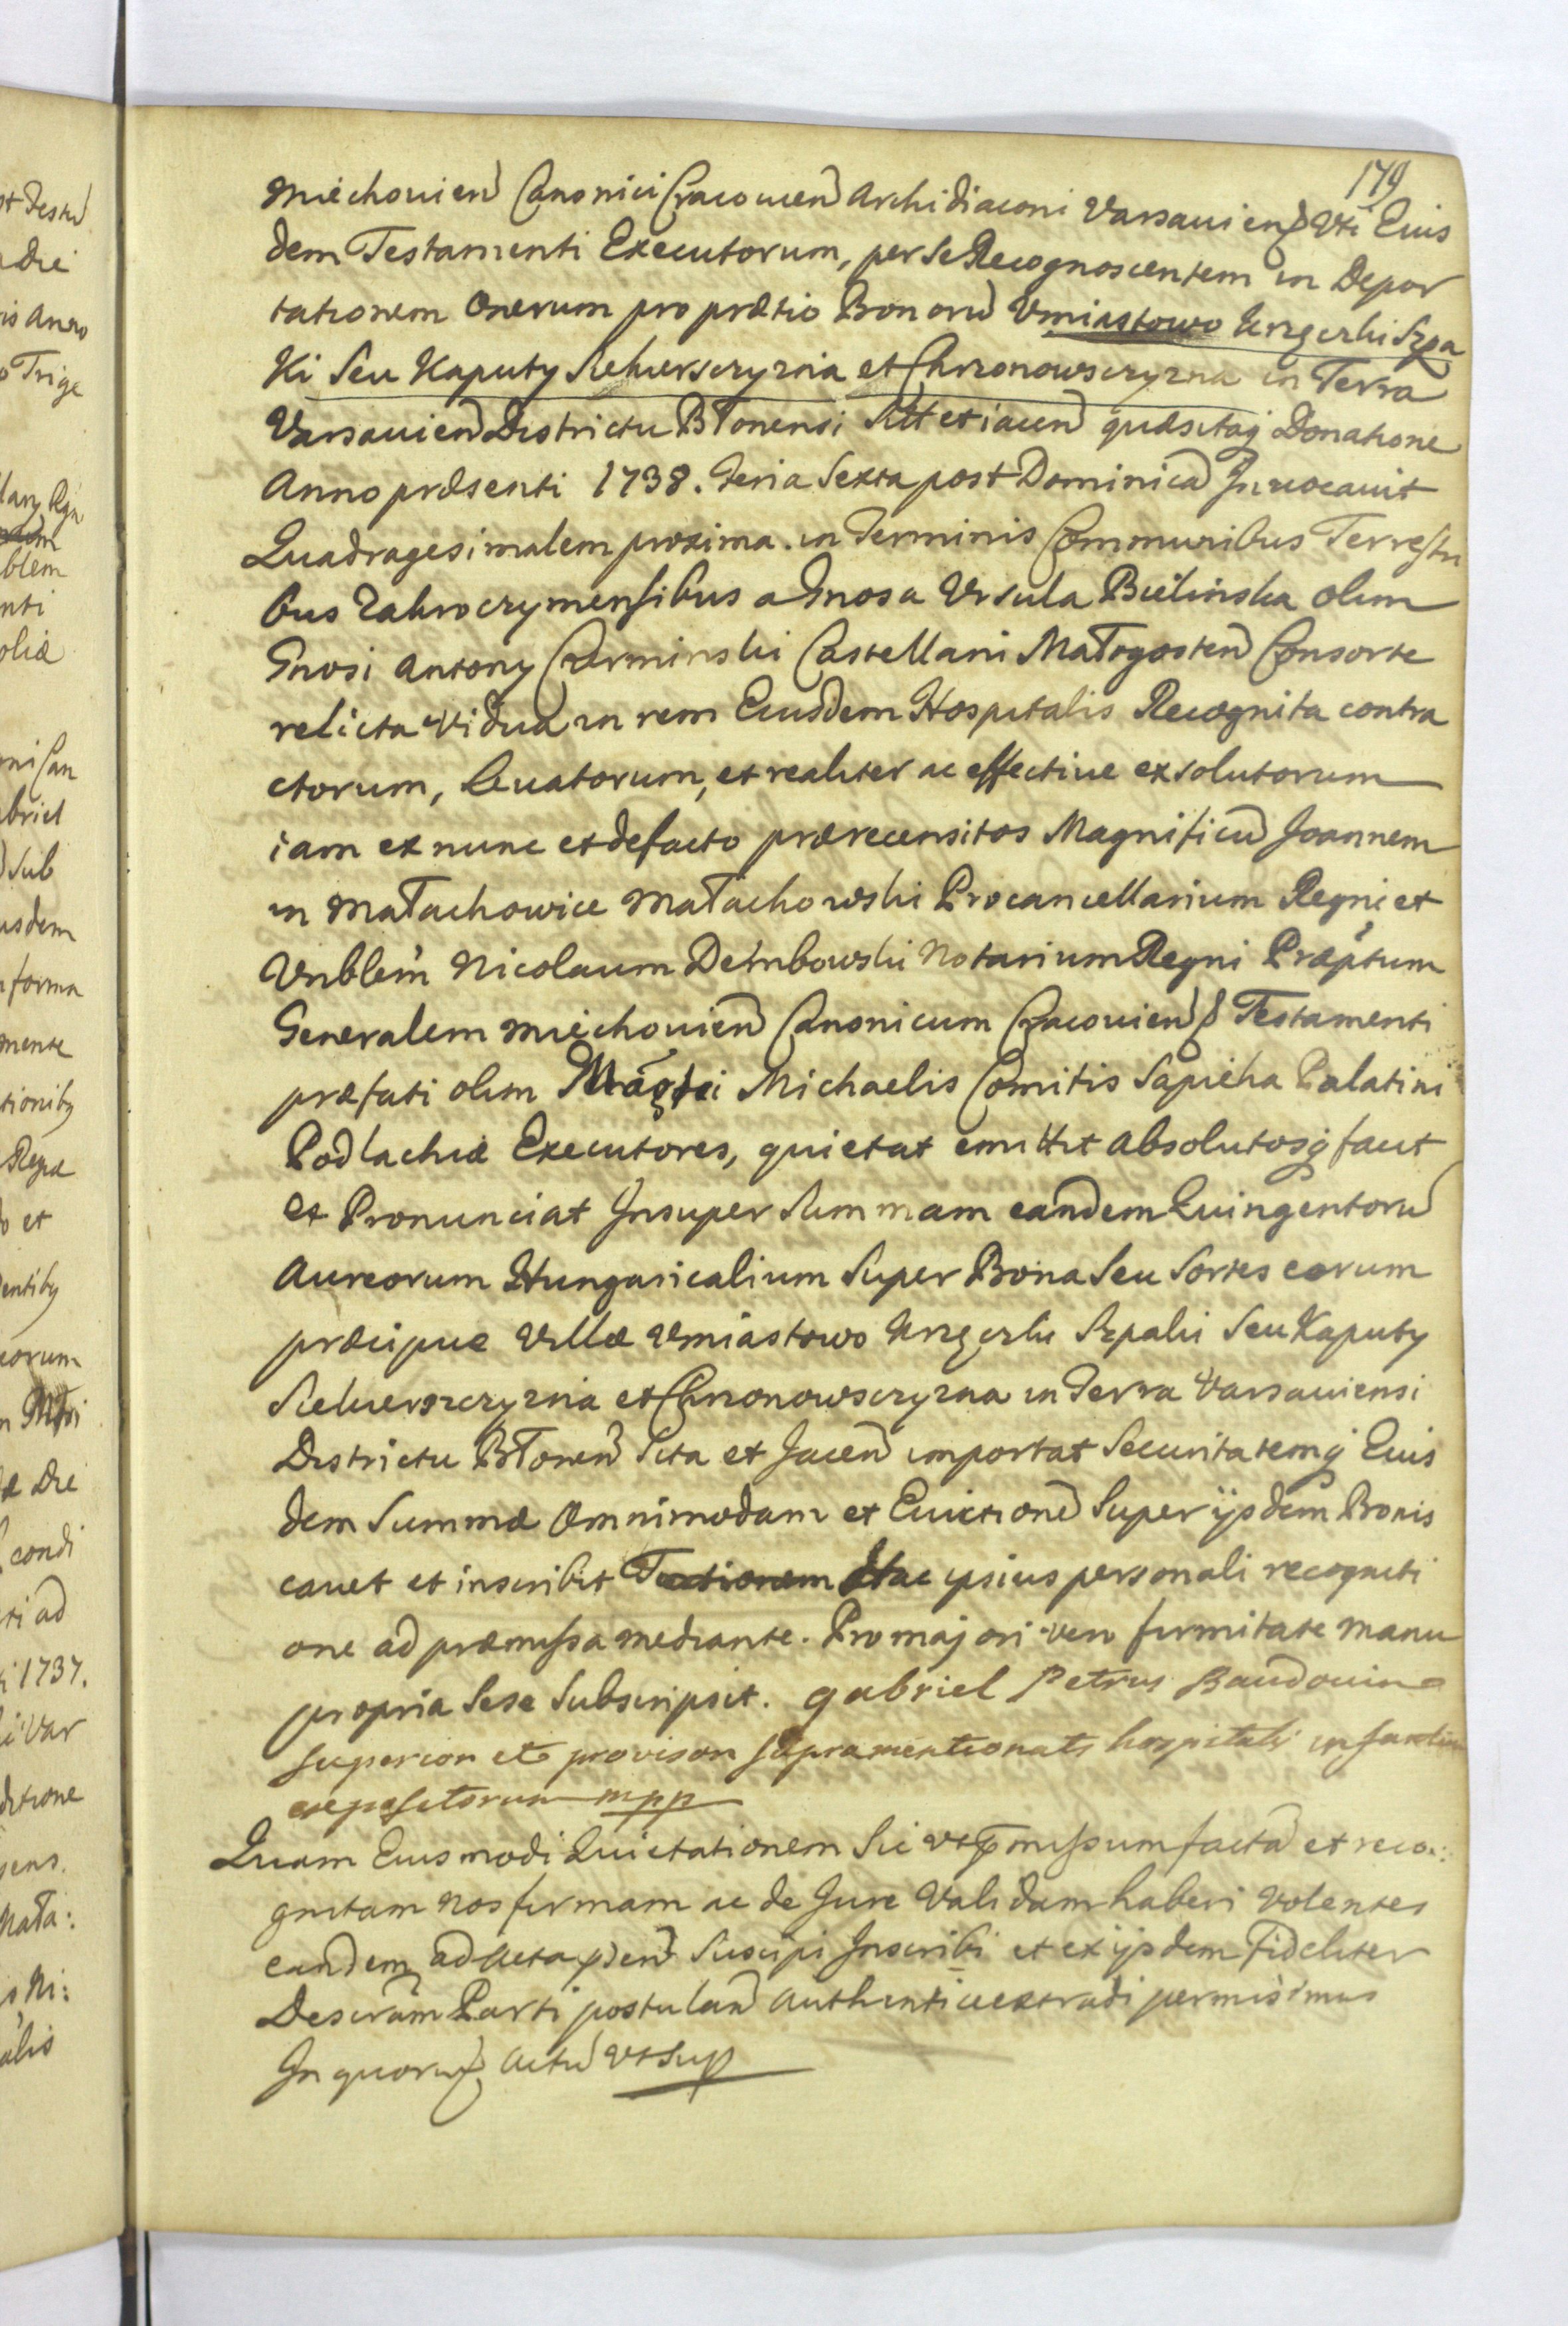 179
Miechouien Canonici Cracouien Archidiaconi Varsauien Vti Eius
dem Testamenti Executorum, per se Recognoscentem in Depor
tationem Onerum pro prætio Bonoru Vmiastowo Krzęczki Szpa
Ki Seu Kaputy Sieluerszczyzna et Chrzonowszczyzna in Terra
Varsauien Districtu Błonensi Sitt et iacen quæsitaq Donatione
Anno præsenti 1738. Feria Sexta post Dominica Inuocauit
Quadragesimalem proxima. in Terminis Communibus Terrestri
bus Zakroczymensibus a Gnosa Vrsula Bielinska olim
Gnosi Antony Czerminski Castellani Małogosten Consorte
relicta vidua in rem Eiusdem Hospitalis Recognita contra
ctorum, leuatorum, et realiter ac effectiue exsolutorum
iam ex nunc et defacto prærecensitos Magnificu Joannem
in Małachowice Małachowski Procancellarium Regni et
Vnblem Nicolaum Dembowski Notarium Regni Præptum
Generalem Miechouien Canonicum Cracouien Testamenti
præfati olim Magfci Michaelis Comitis Sapieha Palatini
Podlachiæ Executores, quietat emittit absolutosq facit
et Pronunciat Insuper Summam eandem Quingentoru
Aureorum Hungaricalium Super Bona Seu Sortes eorum
præcipue Villæ Vmiastowo Krzęczki Szpaki Seu Kaputy
Sieluerszczyzna et Chrzonowszczyzna in Terra Varsauiensi
Districtu Błonen Sita et Jacen importat Securitatemq Eius
dem Summæ Omnimodam et Euictione Super ijsdem Bonis
cauet et inscribit Hac ipsius personali recogniti
one ad præmissa mediante. Pro majori vero firmitate manu
propria Sese Subscripsit. Gabriel Petrus Baudouin
superior et provisor supramentionati hospitalis infantium
expositorum mpp
Quam Eiusmodi Quietationem Sic vt pmissum facta et reco:
gnitam nos firmam ac de Jure Validam haberi Volentes
eandem ad Acta pden Suscipi Inscribi et ex ijsdem Fideliter
Descram Parti postulan Authentice extradi permisimus
In quoru Actu vt Sup